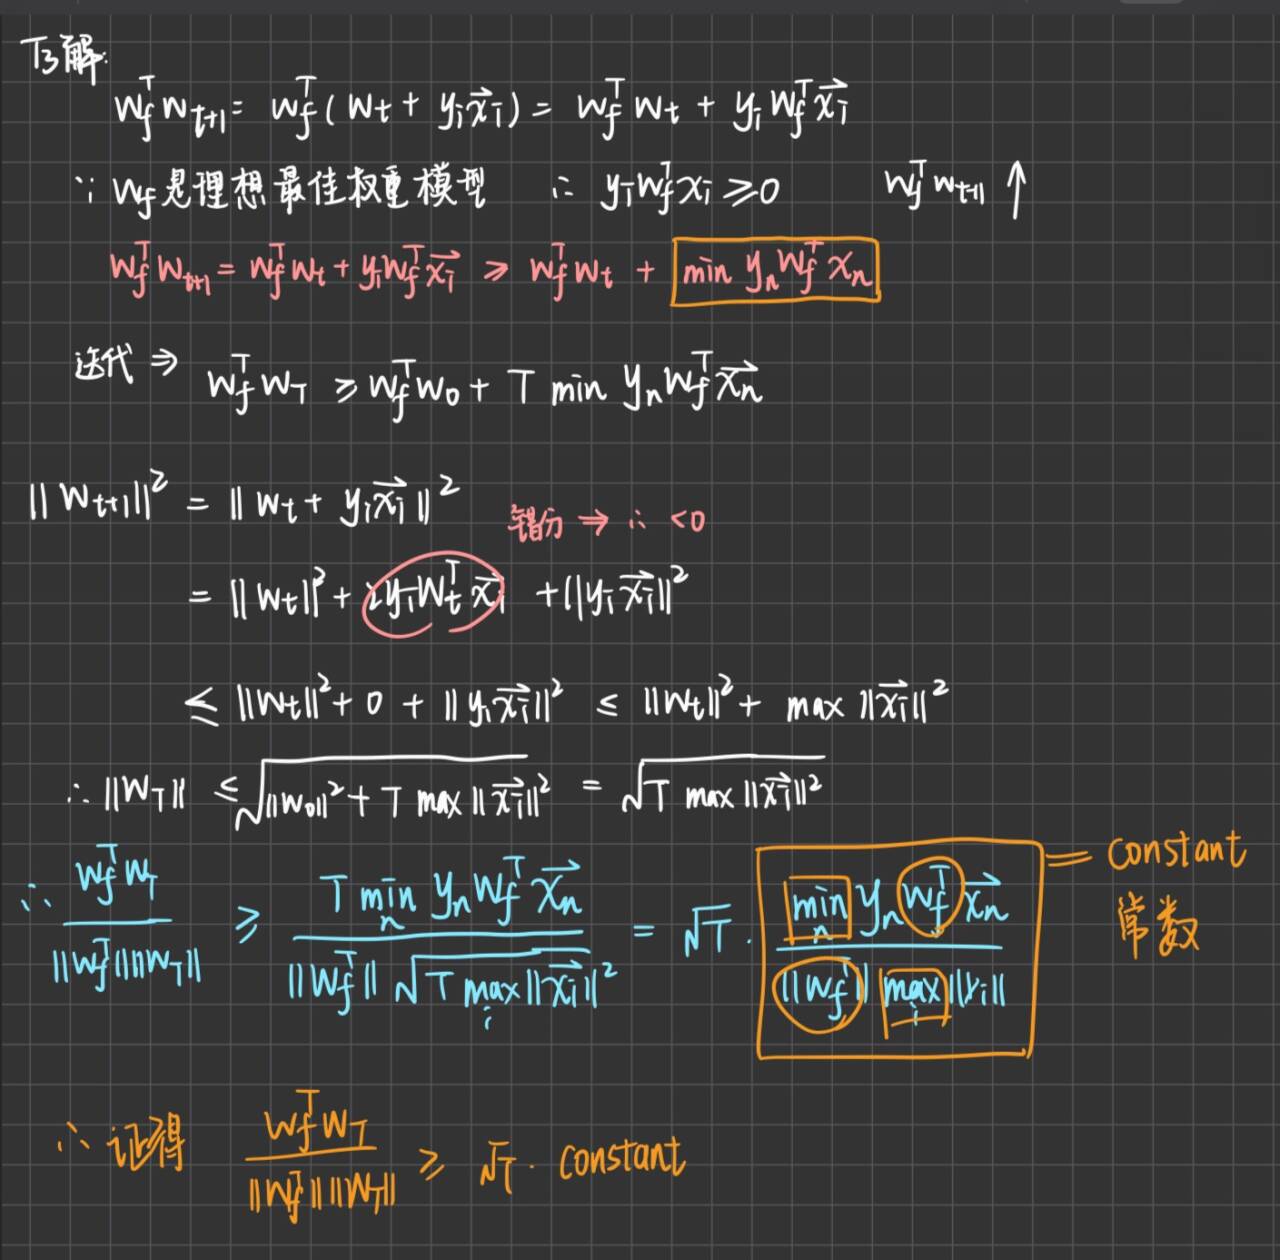 T3解:
w_f^T w_{t+1} = w_f^T (w_t + y_i x⃗_i) = w_f^T w_t + y_i w_f^T x⃗_i
∵ w_f 是理想最佳权重模型 ∴ y_i w_f^T x_i ≥ 0 w_f^T w_{t+1} ↑
w_f^T w_{t+1} = w_f^T w_t + y_i w_f^T x⃗_i ≥ w_f^T w_t + min y_n w_f^T x_n
迭代 ⇒ w_f^T w_T ≥ w_f^T w_0 + T min y_n w_f^T x⃗_n
||w_{t+1}||² = ||w_t + y_i x⃗_i||²
错分 ⇒ ∴ <0
= ||w_t||² + 2y_i w_t^T x⃗_i + ||y_i x⃗_i||²
≤ ||w_t||² + 0 + ||y_i x⃗_i||² ≤ ||w_t||² + max ||x⃗_i||²
∴ ||w_T|| ≤ √(||w_0||² + T max ||x⃗_i||²) = √(T max ||x⃗_i||²)
∴ w_f^T w_T / (||w_f^T|| ||w_T||) ≥ T min_n y_n w_f^T x⃗_n / (||w_f^T|| √(T max_i ||x⃗_i||²)) = √T · min_n y_n w_f^T x⃗_n / (||w_f^T|| max_i ||x_i||) = constant
常数
∴ 证得 w_f^T w_T / (||w_f^T|| ||w_T||) ≥ √T · constant